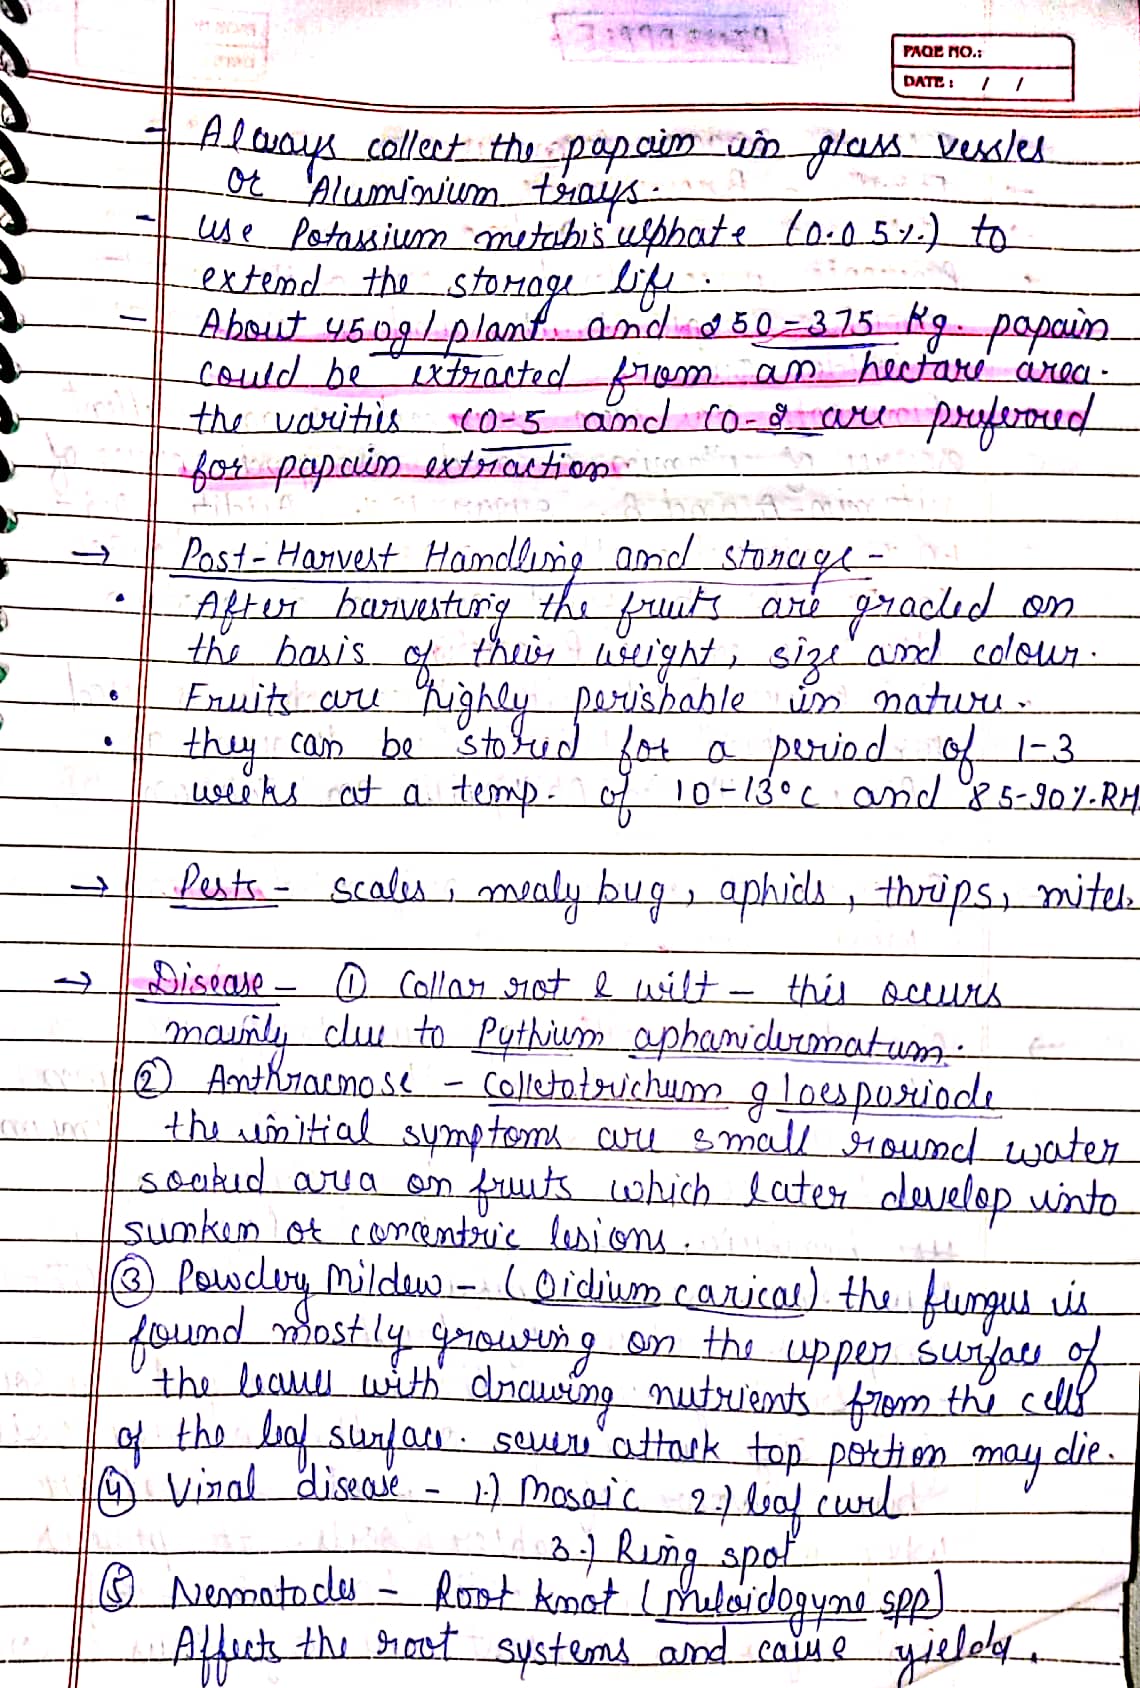 PAGE NO.:
DATE: / /
- Always collect the papain in glass vessles
or Aluminium trays.
- use Potassium metabisulphate (0.05%) to
extend the storage life.
- About 450g/plant and 250-375 Kg. papain
could be extracted from an hectare area.
the varitis CO-5 and CO-2 are preferred
for papain extraction
→ Post-Harvest Handling and storage -
• After harvesting the fruits are graded on
the basis of their weight, size and colour.
• Fruits are highly perishable in nature.
• they can be stored for a period of 1-3
weeks at a temp. of 10-13°c and 85-90%.RH
→ Pests - scales, mealy bug, aphids, thrips, mites.
→ Disease - ① Collar rot & wilt - this occurs
mainly due to Pythium aphanidermatum.
② Anthracnose - Colletotrichum gloesporiode
the initial symptoms are small round water
soaked area on fruits which later develop into
sunken or concentric lesions.
③ Powdery Mildew - (Oidium caricae) the fungus is
found mostly growing on the upper surface of
the leaves with drawing nutrients from the cells
of the leaf surface. severe attack top portion may die.
④ Viral disease - 1.) Mosaic 2.) leaf curl
3.) Ring spot
⑤ Nematodes - Root knot (Meloidogyne spp)
Affects the root systems and cause